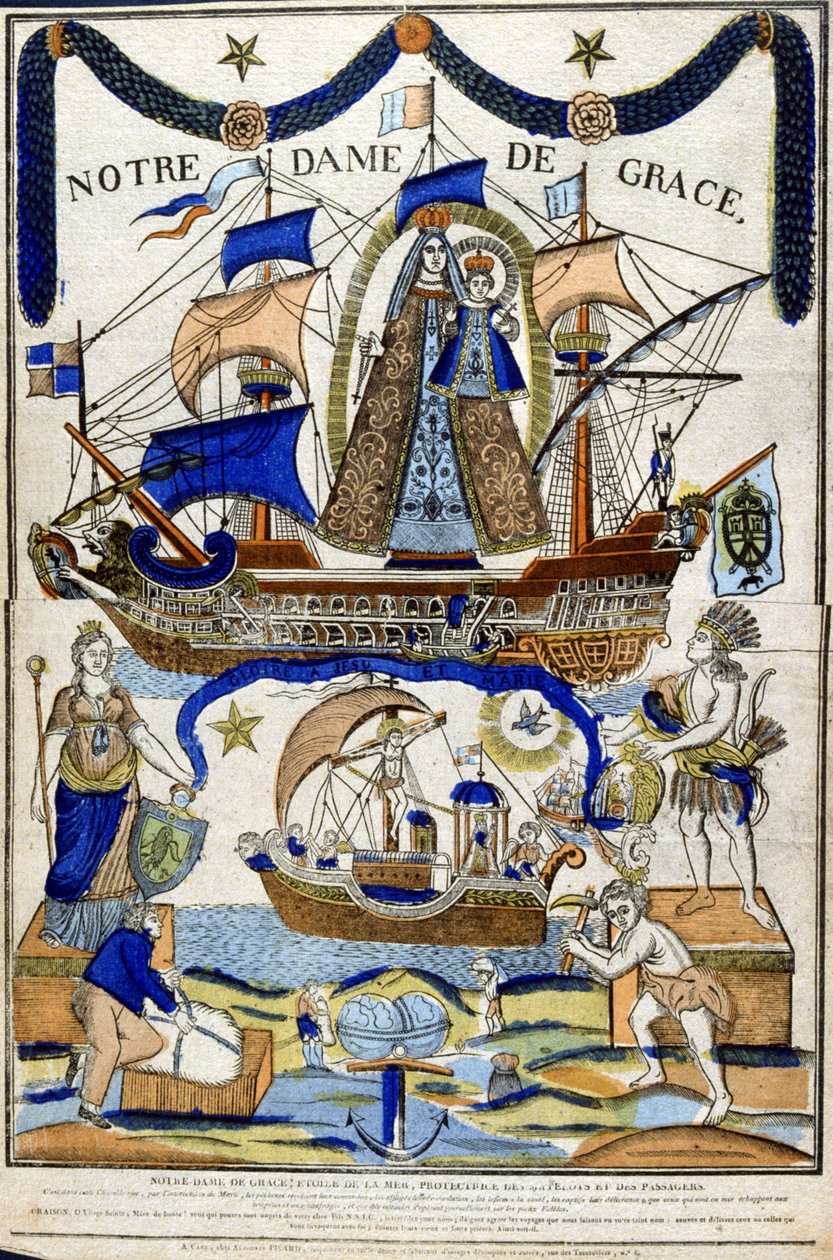 NOTRE DAME DE GRACE,
GLOIRE A JESU ET MARIE
NOTRE-DAME DE GRACE, ETOILE DE LA MER, PROTECTRICE DES MATELOTS ET DES PASSAGERS.
C'est dans cette Chapelle que, par l'intercession de Marie, les pécheurs reçoivent leur conversion, les affligés leur consolation, les infirmes la santé, les captifs leur délivrance, que ceux qui sont en mer échappent aux
tempêtes et aux naufrages, et que des miracles s'opèrent journellement sur les pieux Fidèles.
ORAISON. O Vierge Sainte, Mère de bonté! vous qui pouvez tout auprès de votre cher Fils N.S.J.C., intercédez pour nous; daignez agréer les voyages que nous faisons en votre saint nom; sauvez et délivrez ceux ou celles qui
vous invoquent avec foi; écoutez leurs vœux et leurs prières. Ainsi soit-il.
A Caen, chez PICARD, en taille-douce et fabricant d'images découpées et autres, rue des Teinturiers, n.° 6.